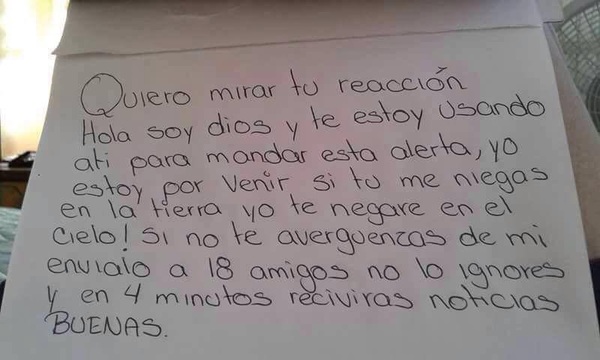 Quiero mirar tu reacción
Hola soy dios y te estoy usando
ati para mandar esta alerta, yo
estoy por venir si tu me niegas
en la tierra yo te negare en el
cielo! Si no te averguenzas de mi
envialo a 18 amigos no lo ignores
y en 4 minutos reciviras noticias
BUENAS.